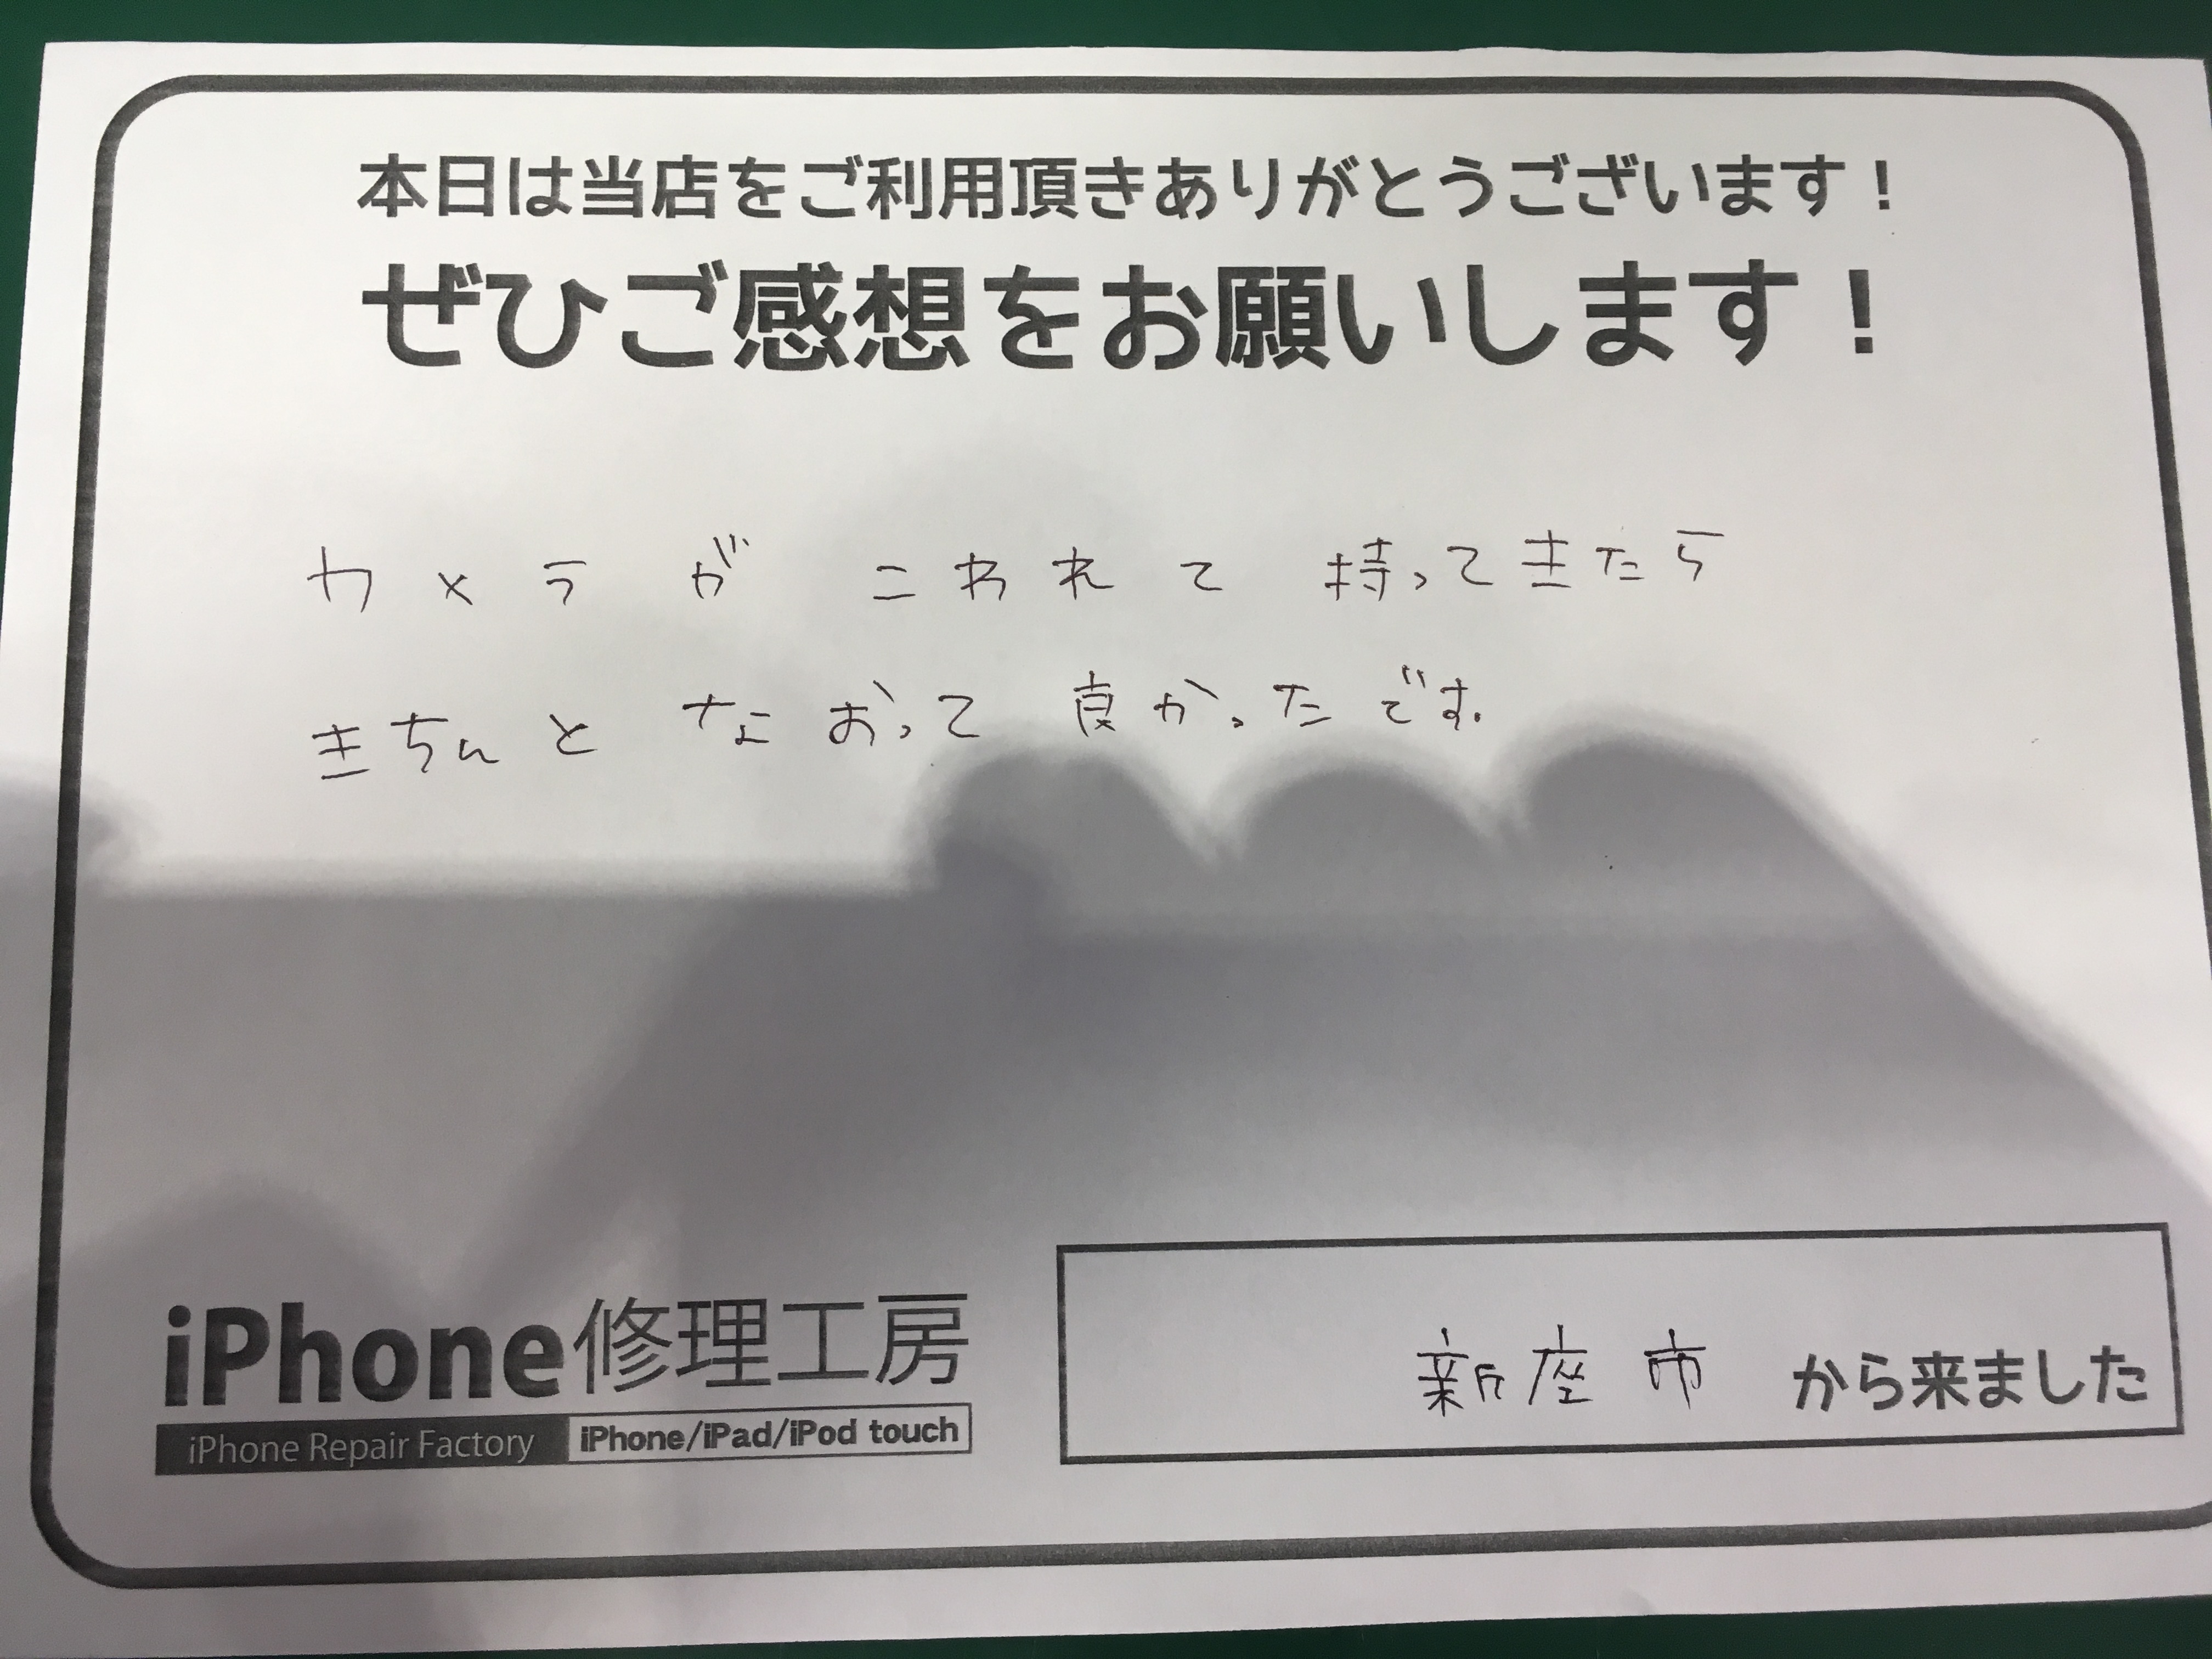 本日は当店をご利用頂きありがとうございます！
ぜひご感想をお願いします！
カメラが こわれて 持ってきたら
きちんと なおって 良かったです。
iPhone修理工房
iPhone Repair Factory iPhone/iPad/iPod touch
新座市 から来ました